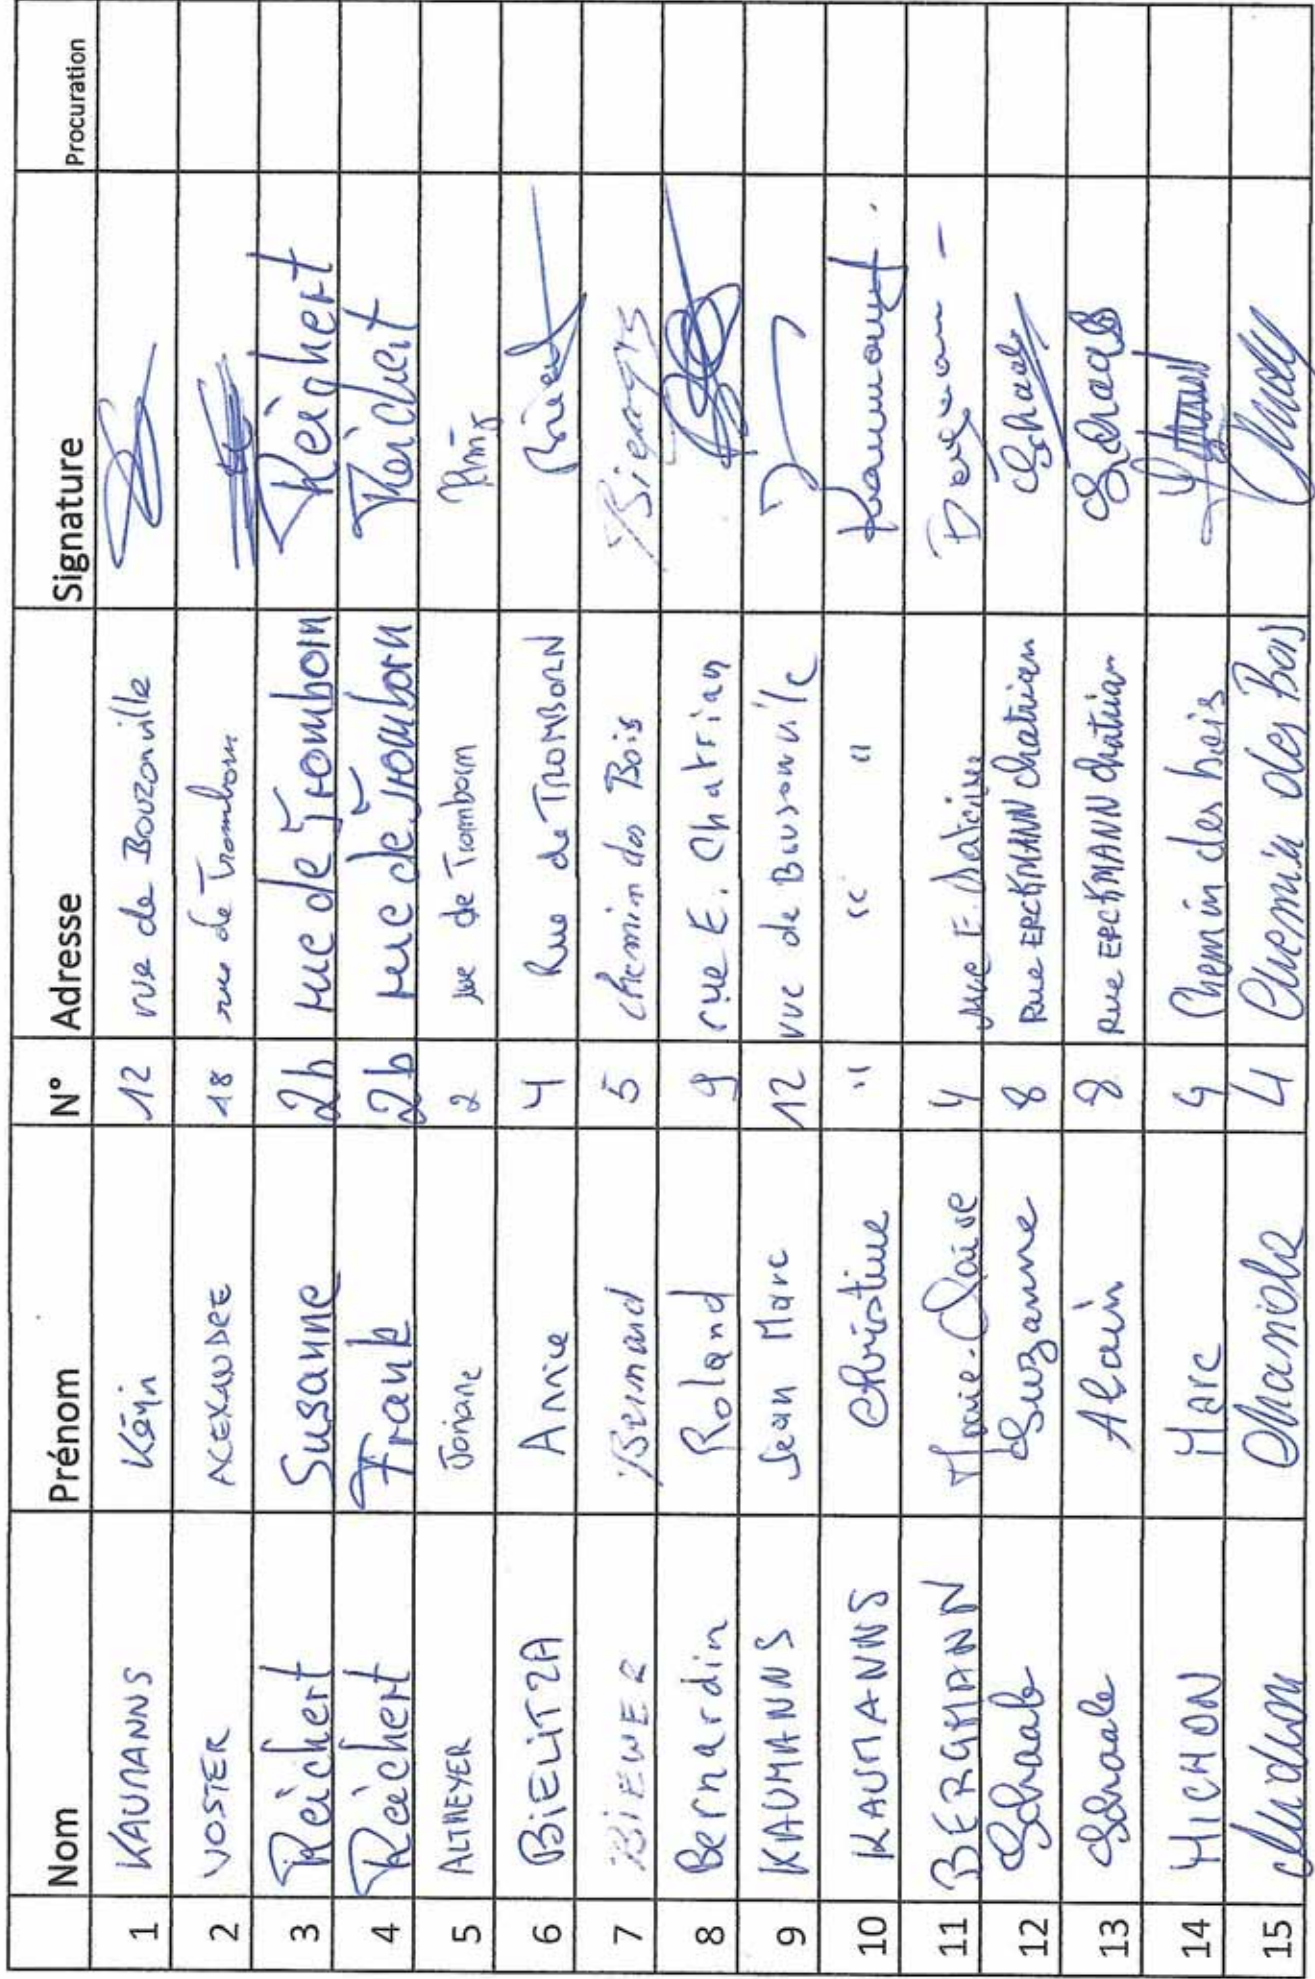 Nom Prénom N° Adresse Signature Procuration
1 KAUMANNS Kévin 12 rue de Bouzonville
2 VOSTER ALEXANDRE 18 rue de Tromborn
3 Reichert Susanne 2b rue de Tromborn Reichert
4 Reichert Frank 2b rue de Tromborn Reichert
5 ALTMEYER Joriane 2 rue de Tromborn
6 BiELiTZA Annie 4 Rue de TROMBORN
7 BIEWER Bernard 5 chemin des Bois
8 Bernardin Roland 9 rue E. Chatrian
9 KAUMANNS Jean Marc 12 rue de Bousonville
10 KAUMANNS Christine " " "
11 BERGMANN Marie-Claire 4 rue E.
12 Schaab Suzanne 8 Rue ERCKMANN Chatrian Schaab
13 Schaab Alain 8 Rue ERCKMANN Chatrian Schaab
14 MICHON Marc 4 Chemin des bois
15 4 Chemin des Bois